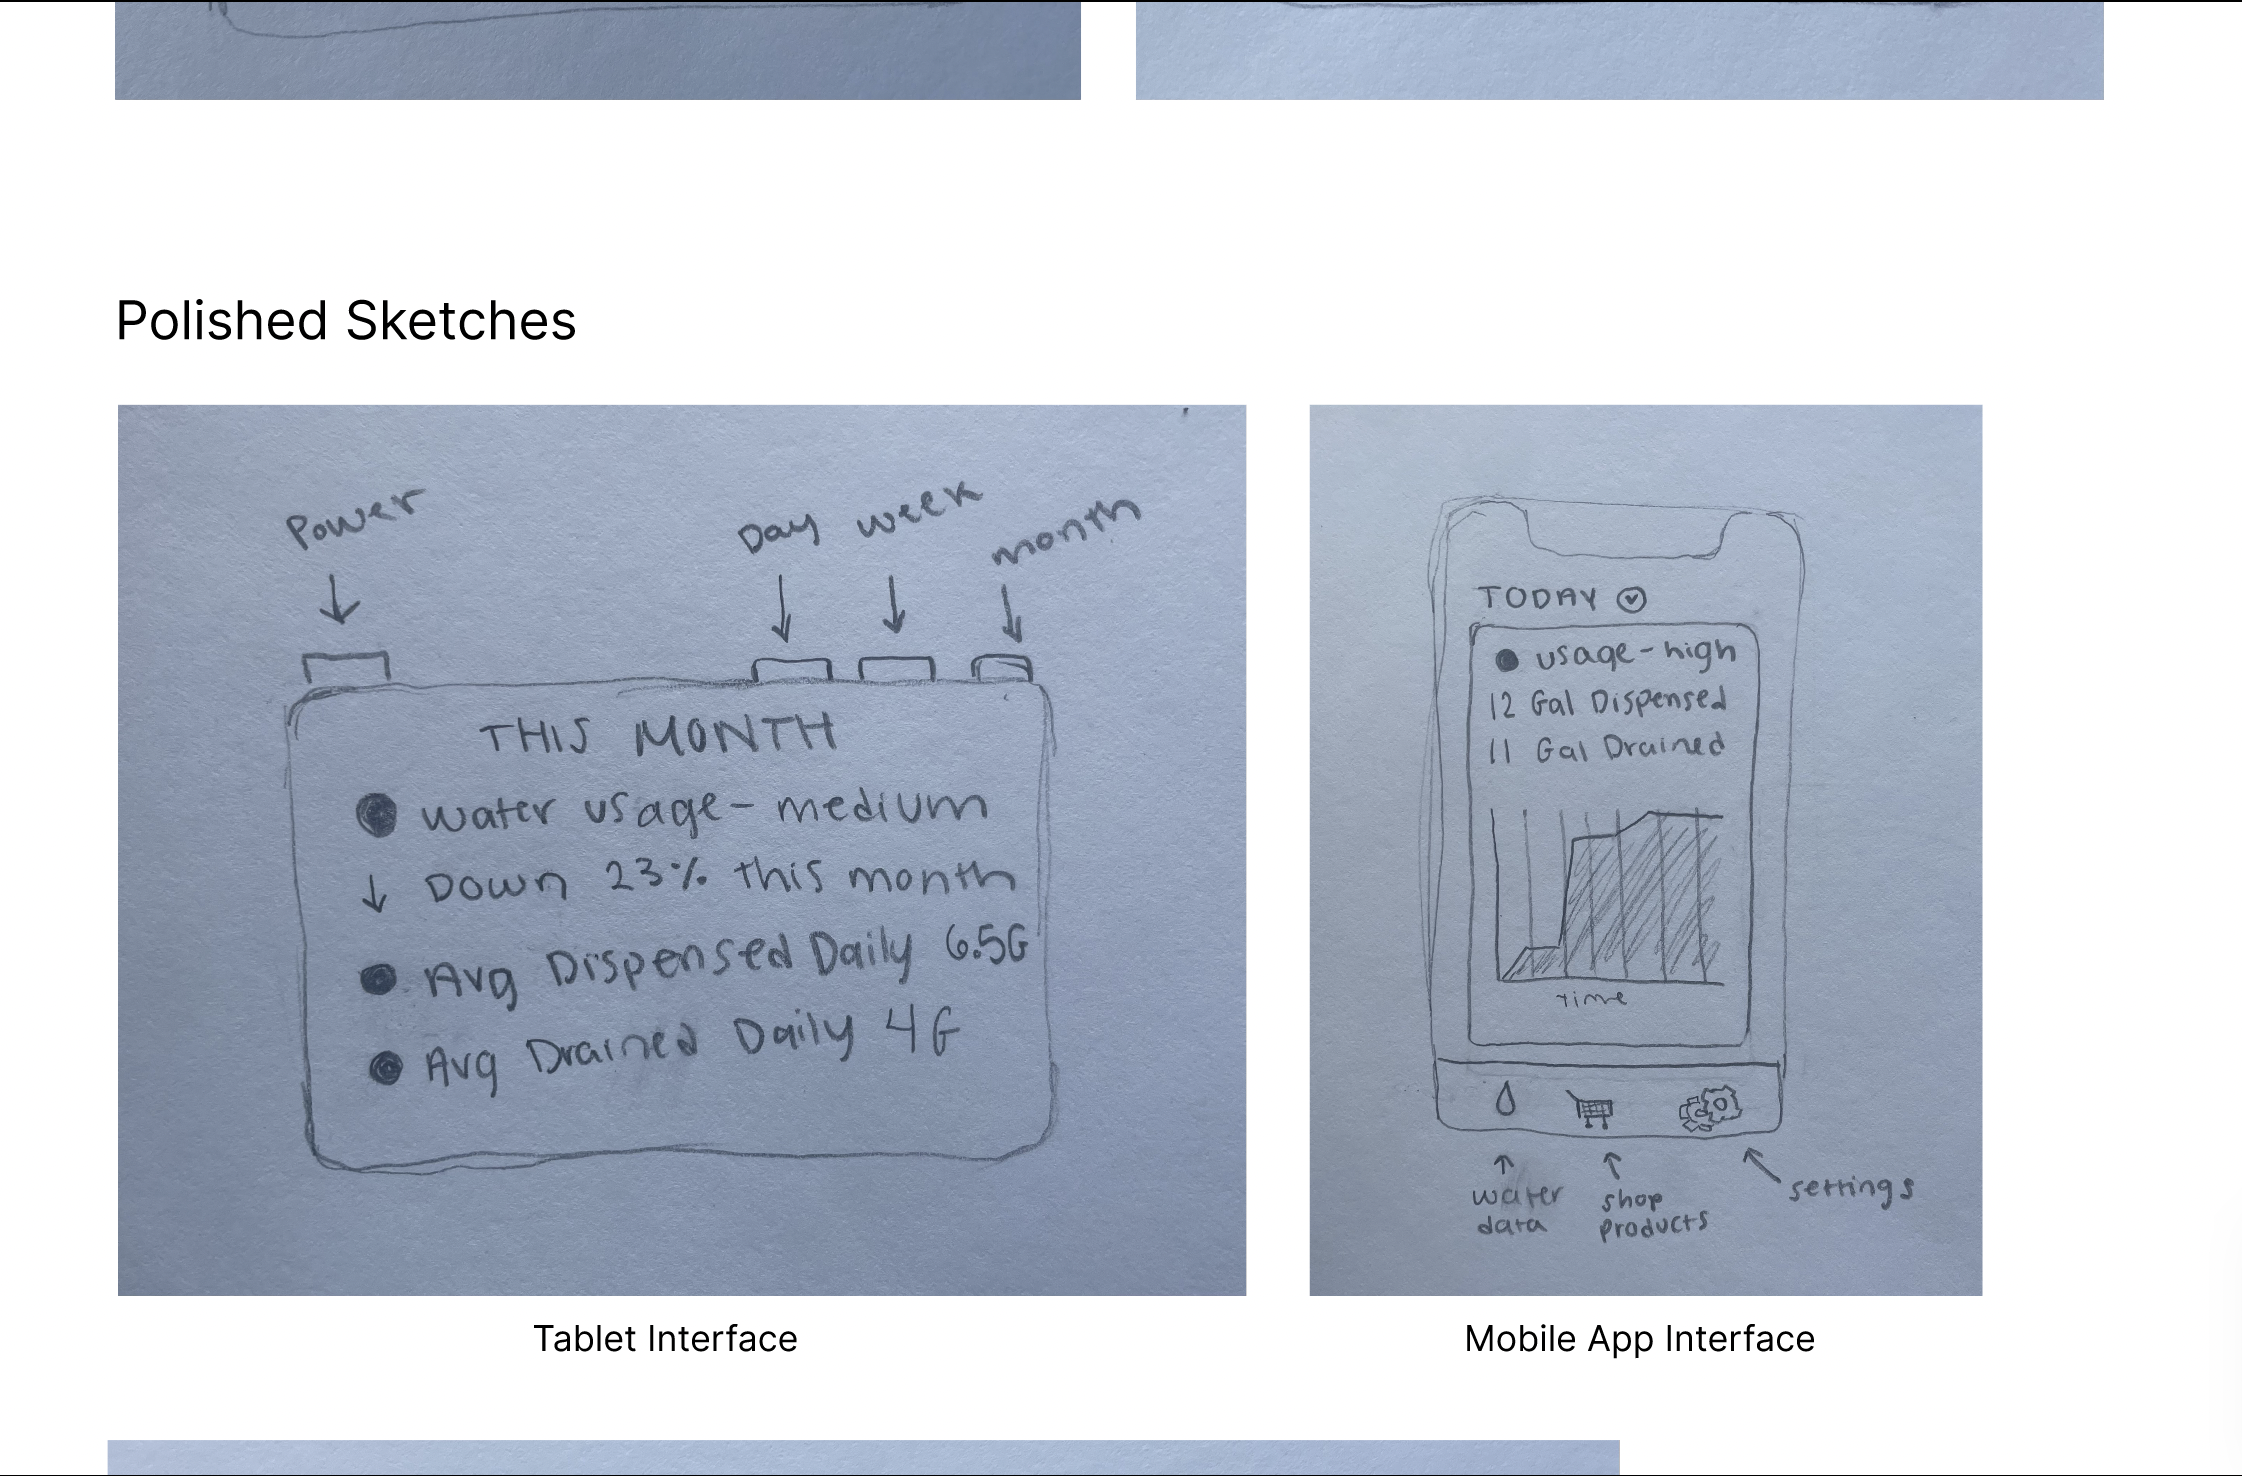 Polished Sketches
Power
Day week
month
THIS MONTH
water usage - medium
↓ Down 23% this month
Avg Dispensed Daily 6.5G
Avg Drained Daily 4G
Tablet Interface
TODAY
usage - high
12 Gal Dispensed
11 Gal Drained
Time
water
data
shop
products
settings
Mobile App Interface